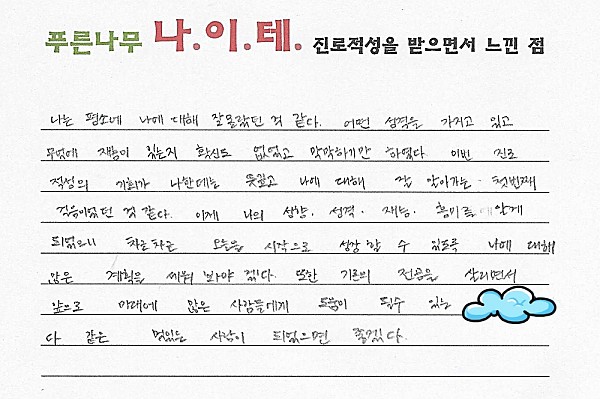 푸른나무 나.이.테. 진로적성을 받으면서 느낀 점
나는 평소에 나에 대해 잘 몰랐던 것 같다. 어떤 성격을 가지고 있고
무엇에 재능이 있는지 확신도 없었고 막막하기만 하였다. 이번 진로
적성의 기회가 나한테는 뜻깊고 나에 대해 잘 알아가는 첫번째
걸음이었던 것 같다. 이제 나의 성향. 성격. 재능. 흥미를 알게
되었으니 차근차근 오늘을 시작으로 성장할 수 있도록 나에 대해
많은 계획을 세워 봐야 겠다. 또한 기존의 전공을 살리면서
앞으로 미래에 많은 사람들에게 도움이 될수 있는
다 같은 멋있는 사람이 되었으면 좋겠다.